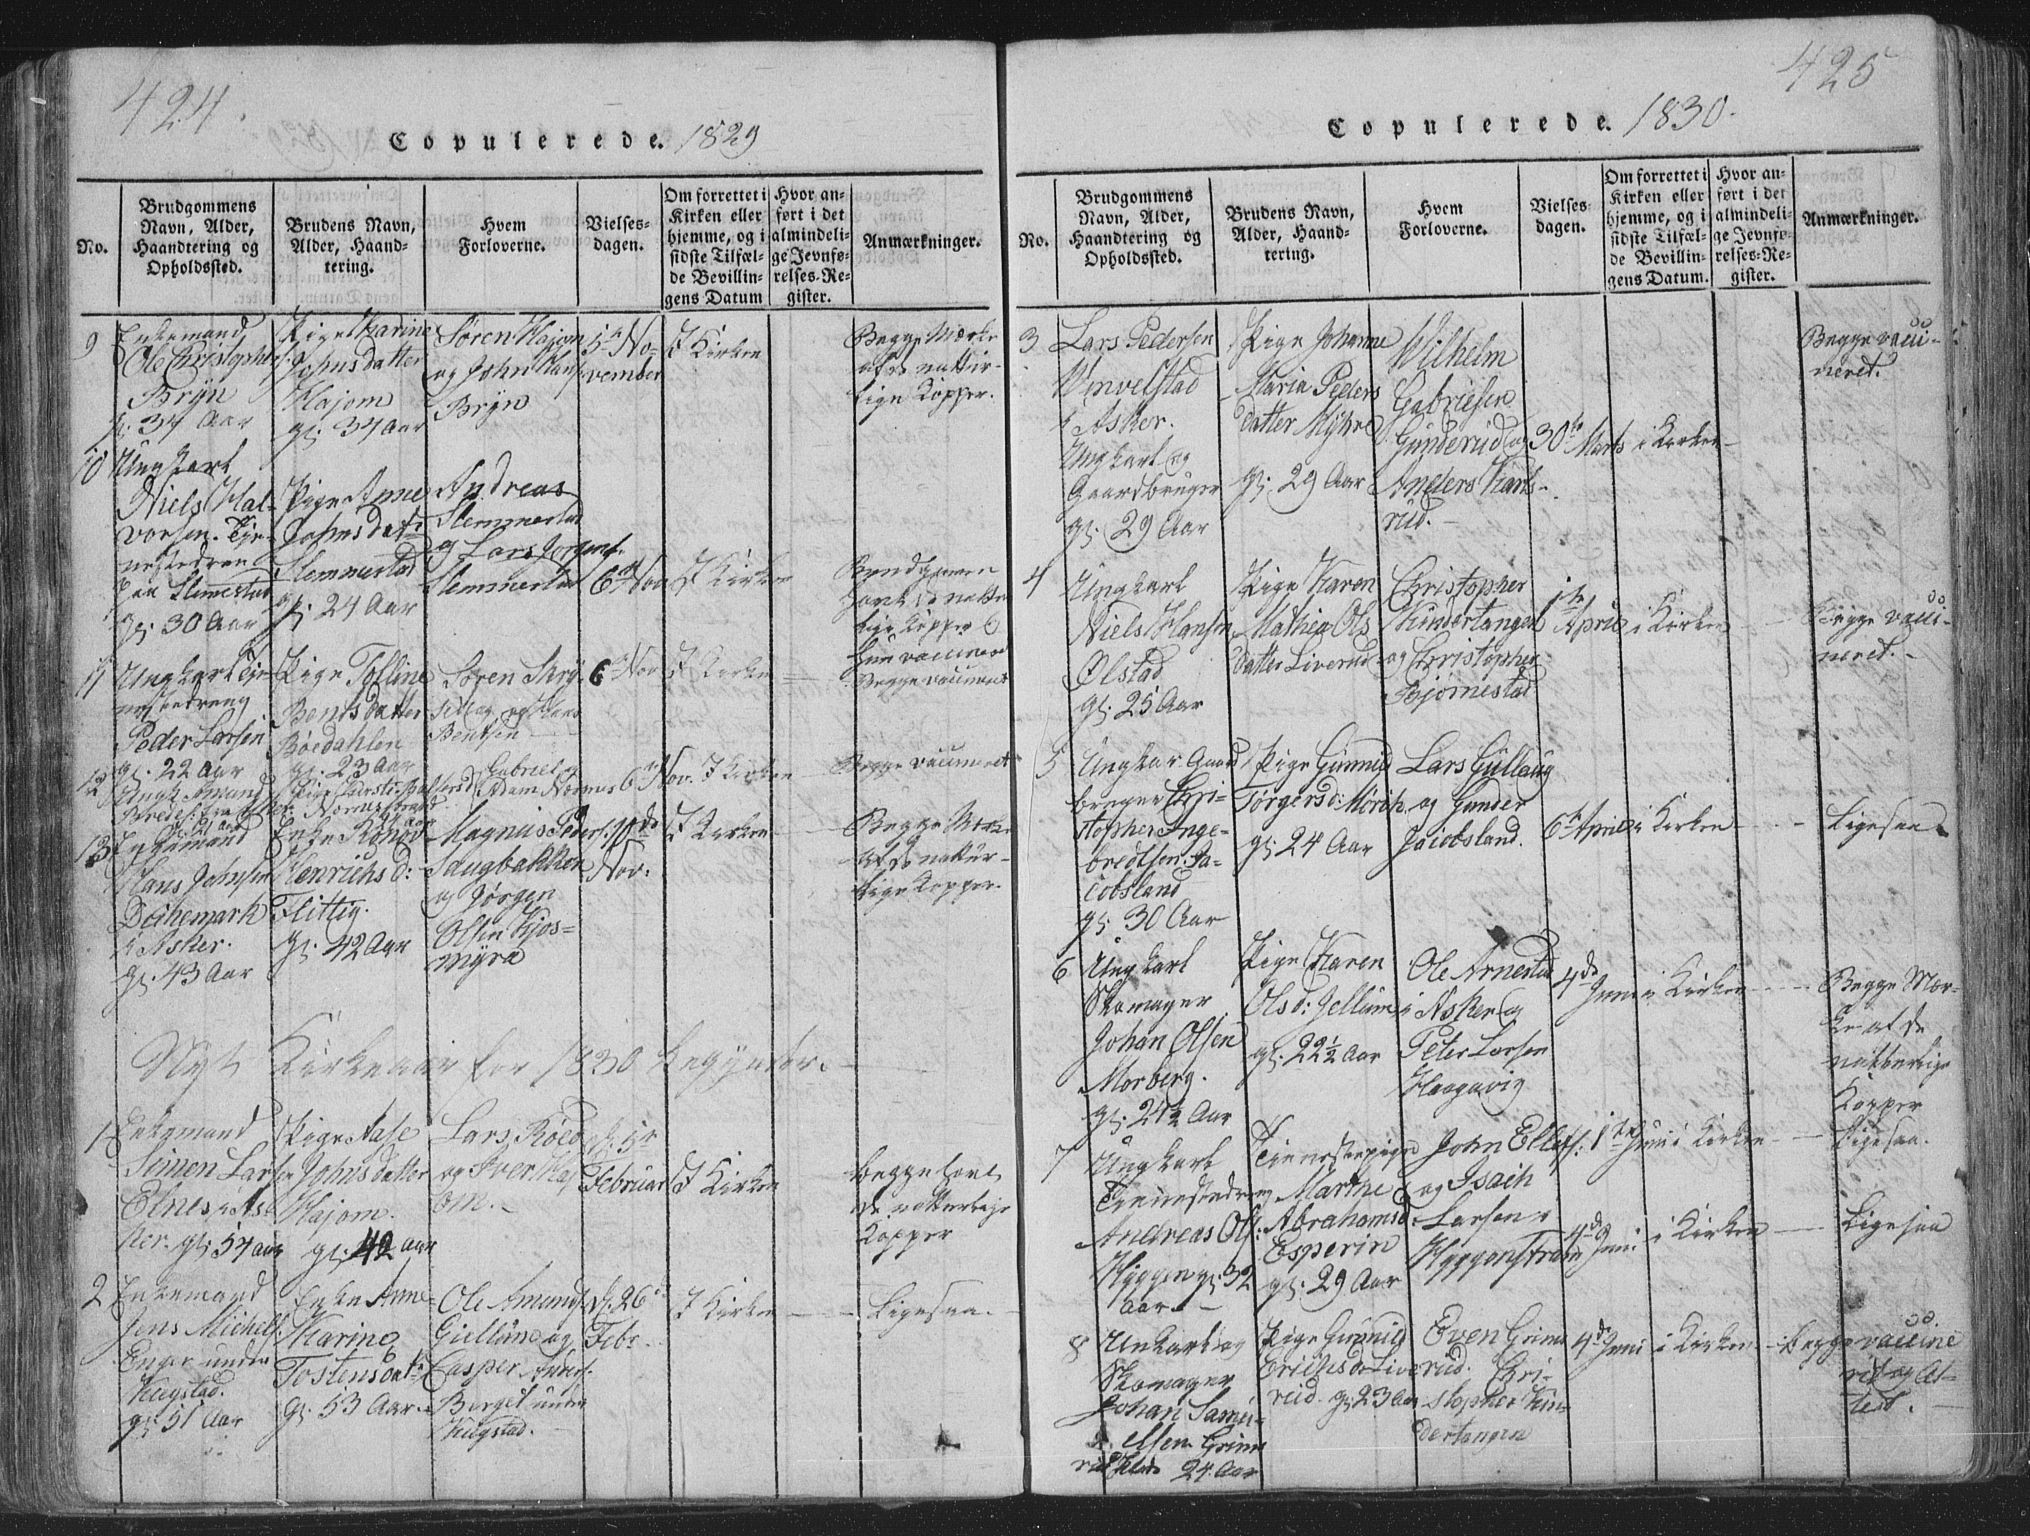 424.
Copulerede. 1829
No.
Brudgommens
Navn, Alder,
Haandtering og
Opholdssted.
Brudens Navn,
Alder, Haand-
tering.
Hvem
Forloverne.
Vielses-
dagen.
Om forrettet i
Kirken eller
hjemme, og i
sidste Tilfæl-
de Bevillin-
gens Datum
Hvor an-
ført i det
almindeli-
ge Jevnfø-
relses-Re-
gister.
Anmærkninger.
9
Enkemand
Ole Christopher
Bryn
37 Aar
Pige Karine
Johnsdatter
Hajom
gl. 37 Aar
Søren Hajom
og John
Bryn
5te No-
vember
I Kirken
Begge Mærke
af de nattur-
lige Kopper.
10
Ungkarl
Niels Hal-
vorsen. Tje-
nestedreng
paa Slemestad
gl. 30 Aar
Pige Anne
Johnsdatr
Slemmestad
gl. 24 Aar
Andreas
Slemmestad
og Lars Jørgens.
Slemmestad
6te Nov
I Kirken
Brudgommen
havt de natte
lige Kopper
hun vaccineret
11
Ungkarl Tje-
nestedreng
Peder Larsen
gl. 22 Aar
Pige Tolline
Bentsdatter
Bøedahlen
gl. 23 Aar
Søren
og
Bentsen
6te Nov
I Kirken
Begge vaccineret
12
Ungk. Amund
gl. 21 Aar
Pige Kirsti
Gabriel og
Adam Nærnes
6te Nov.
I Kirken
Begge vaccineret
13
Enkemand
Hans Johnsen
Dechemark
i Asker.
gl. 43 Aar
Enke Rønov
Henrichsd:
Flittig.
gl. 42 Aar
Magnus Peders.
Saugbakken
og Jørgen
Olsen Kjos-
myra
10de
Nov.
I Kirken
Begge Mærke
af de natur-
lige Kopper.
Nyt Kirkeaar for 1830 begynder.
1
Enkemand
Simen Larsen
Elnes i As-
ker. gl. 57 aar
Pige Aase
Johnsdatter
Hajom.
gl. 42 aar
Lars Røed
og Iver Haj
om.
d. 5te
Februar
I Kirken
begge havt
de natturlige
Kopper
2
Enkemand
Jens Michels.
Enger under
Kiegstad.
gl. 51 Aar
Enke Anne
Karine
Tostensdatr
gl. 53 Aar.
Ole Amunds.
Giellum og
Casper Anders.
Berget under
Kiegstad.
d. 26
Febr.
I Kirken
Ligesaa.
425
Copulerede. 1830.
No.
Brudgommens
Navn, Alder,
Haandtering og
Opholdssted.
Brudens Navn,
Alder, Haand-
tering.
Hvem
Forloverne.
Vielses-
dagen.
Om forrettet i
Kirken eller
hjemme, og i
sidste Tilfæl-
de Bevillin-
gens Datum.
Hvor an-
ført i det
almindeli-
ge Jevnfø-
relses-Re-
gister.
Anmærkninger.
3
Lars Pedersen
Venvelstad
i Asker.
Ungkarl og
Gaardbruger
gl. 29 Aar
Pige Johanne
Maria Peders
datter Myhre
gl. 29 Aar
Wilhelm
Gabrielsen
Gunderud og
Anders Karls-
rud.
30te Marts
i Kirken
Begge vacci-
neret.
4
Ungkarl
Niels Hansen
Ølstad
gl. 25 Aar
Pige Karen
Mathea Ols
datter Liverud
Christopher
Kindertangen
og Christopher
Bjørnestad
1te
April
i Kirken
Begge vacci-
neret.
5
Ungkar Gaard
bruger Chri-
stopher Inge-
bredtsen Ja-
cobsland
gl. 30 Aar
Pige Gunnild
Torgersd: Mørch.
gl. 24 Aar
Lars Gullaug
og Gunder
Jacobsland.
6te April
i Kirken
Ligesaa.
6
Ungkarl
Skomager
Johan Olsen
Morberg.
gl. 24½ Aar
Pige Karen
Olsd: Jellum
gl. 22½ Aar
Ole Arnestad
i Asker og
Peter Larsen
Haagavig
4de
Juni
i Kirken
Begge Mær-
ke af de
natturlige
Kopper
7
Ungkarl
Tienestedreng
Andreas Ols.
Hyggen gl. 32
Aar.
Tienestepige
Marthe
Abrahamsd.
Esperin
gl. 29 Aar
John Ellefs.
og Isach
Larsen
Hyggenstranden
1te Juni
i Kirken
Ligesaa.
4de
Juni
i Kirken
Ligesaa
8
Unkarl og
Skomager
Johan Samu-
elsen Grim
24 Aar
Pige Gunnild
Erichsd. Live
rud. gl. 23 Aar
Even Grims
rud. Chri-
stopher Kin-
dertangen
4de Juni
i Kirken
begge vaccine
ret og At-
test.